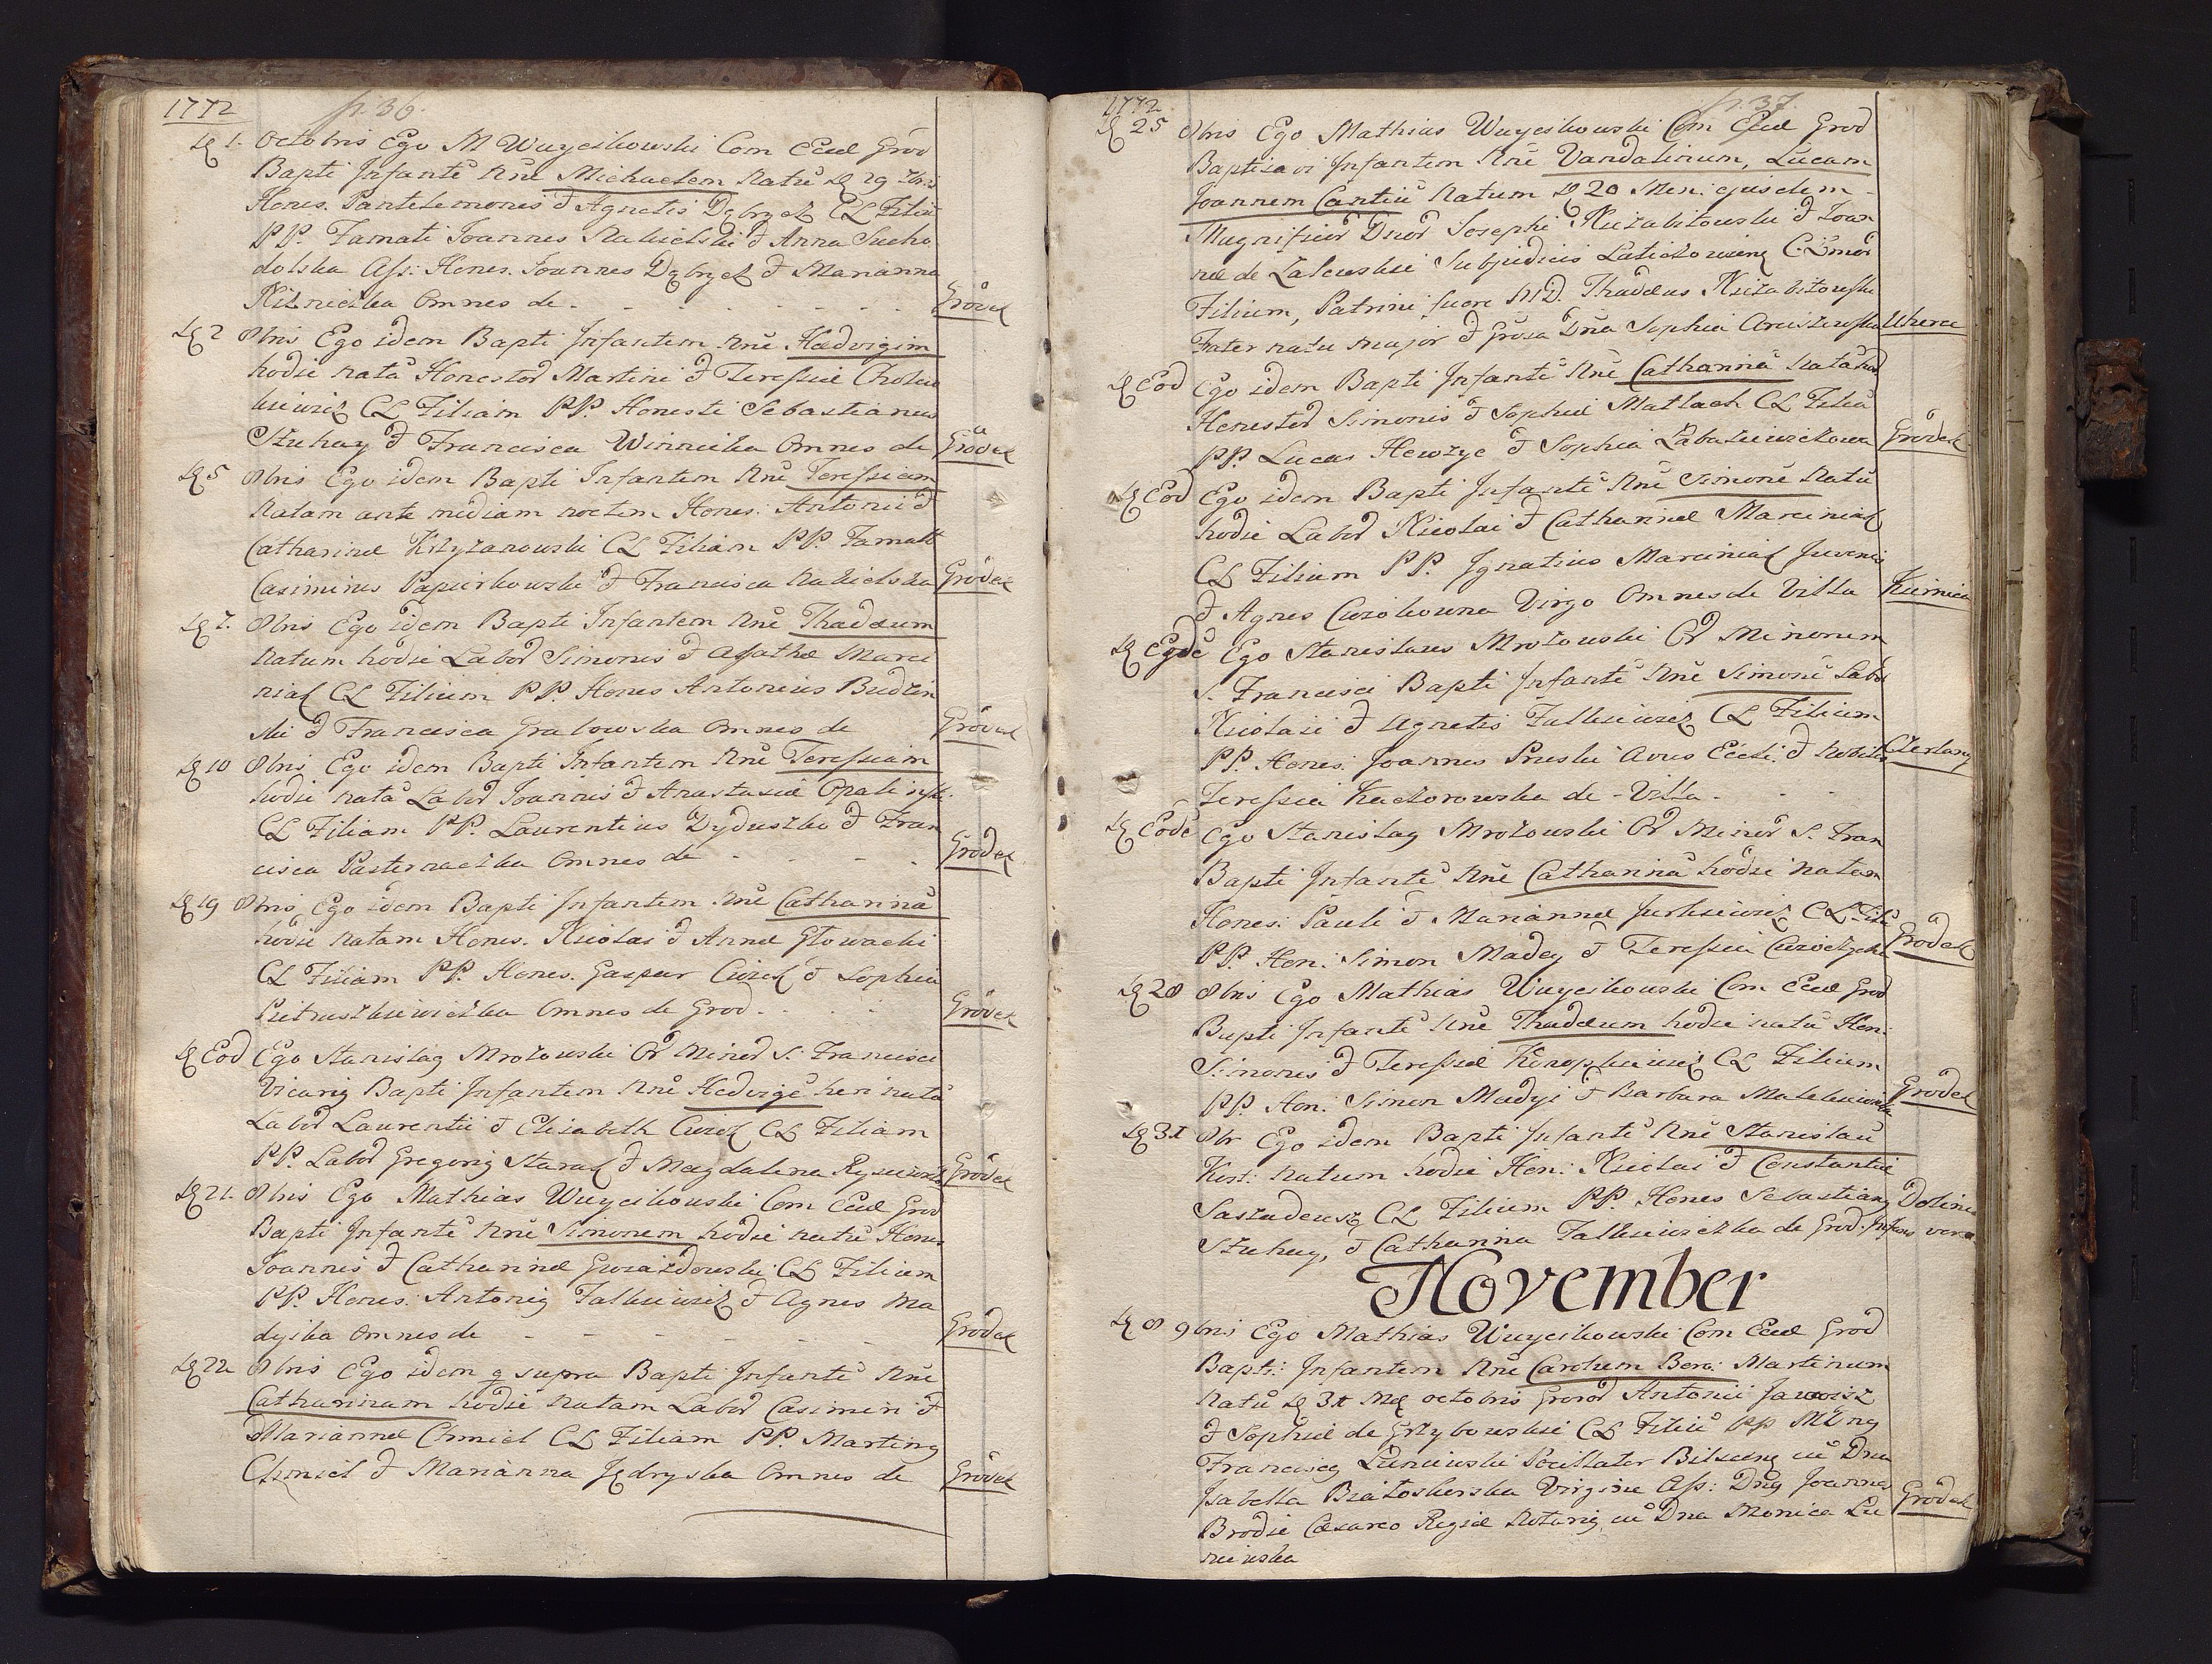 1772
p. 36.
D 1. Octobris Ego M Wuycikowski Com Eccl Grod
Bapti Infantē Nnē Michaelem Natū D 29 7bris
Hones. Pantelemonis & Agnetis Dąbrycz CL Filiū
PP. Famati Joannes Nakielski & Anna Sucho
dolska Ass: Hones. Joannes Dąbrycz & Marianna
Omnes de - - - - - Grodek
D 2 8bris Ego idem Bapti Infantem Nnē Hedvigim
hodie natā Honestor Martini & Teressiæ
CL Filiam PP. Honesti Sebastianus
Szuhay & Francisca Winnicka Omnes de Grodek
D 5 8bris Ego idem Bapti Infantem Nnē Teressiam
Natam ante mediam noctem Hones. Antonii &
Catharinæ Krzyzanowski CL Filiam PP. Famati
Casimirus Papierkowski & Francisca Nakielska Grodek
D 7. 8bris Ego idem Bapti Infantem Nnē Thadæum
Natum hodie Labor Simonis & Agathæ Marci
niak CL Filium PP. Hones Antonius Budzin
ski & Francisca Grabowska Omnes de Grodek
D 10 8bris Ego idem Bapti Infantem Nnē Teressiam
hodie natā Labor Joannis & Anastasiæ
CL Filiam PP. Laurentius Dyduszko & Fran
cisca Pasternaczka Omnes de - - - Grodek
D 19 8bris Ego idem Bapti Infantem Nnē Catharinā
hodie Natam Hones. Nicolai & Annæ Głowacki
CL Filiam PP. Hones. Gaspar Cwiok & Sophia
Pietruszkiewiczka Omnes de Grod. - - Grodek
D Eod Ego Stanislaus Mrozowski Or Minor S. Francisci
Vicarius Bapti Infantem Nnē Hedvigē heri natā
Labor Laurentii & Elisabeth Cwiok CL Filiam
PP. Labor Gregorius Starak & Magdalena Grodek
D 21. 8bris Ego Mathias Wuycikowski Com Eccl Grod
Bapti Infantē Nnē Simonem hodie natū Hones
Joannis & Catharinæ Gwiazdowski CL Filium
PP. Hones. Antonius Falkiewicz & Agnes Ma
dyika Omnes de - - - - - Grodek
D 22 8bris Ego idem q supra Bapti Infantē Nnē
Catharinam hodie Natam Labor Casimiri &
Mariannæ Chmiel CL Filiam PP. Martinus
Chmiel & Marianna Jędryska Omnes de Grodek
1772
p. 37.
D 25 8bris Ego Mathias Wuycikowski Com Eccl Grod
Baptisavi Infantem Nnē Vandalinum, Lucam
Joannem Cantiū Natum D 20 Men: ejusdem
Magnificor Dnor Josephi Niezabitowski & Joan
næ de Zalewskie Subjudicis
Filium, Patrini fuere MD. Thadæus Niezabitowski
Frater natu major & Grosa Dna Sophia Uherce
D Eod Ego idem Bapti Infantē Nnē Catharinā natā hod
Honestor Simonis & Sophiæ Matlach CL Filiā
PP. Lucas & Sophia Grodek
D Eod Ego idem Bapti Infantē Nnē Simonē Natū
hodie Labor Nicolai & Catharinæ Marciniak
CL Filium PP. Ignatius Marciniak Juvenis
& Agnes Cwiokowna Virgo Omnes de Villa Kiernica
D Eodē Ego Stanislaus Mrozowski Or Minorum
S. Francisci Bapti Infantē Nnē Simonē Labor
Nicolai & Agnetis Falkiewicz CL Filium
PP. Hones. Joannes & Nobilis Czerlany
Teressia Kaczorowska de - Villa - - -
D Eodē Ego Stanislaus Mrozowski Or Minor S. Fran
Bapti Infantē Nnē Catharinā hodie Natam
Hones: Pauli & Mariannæ Jurkiewicz CL Filiā
PP. Hon: Simon Madey & Teressia Grodek
D 28 8bris Ego Mathias Wuycikowski Com Eccl Grod
Bapti Infantē Nnē Thadæum hodie natū Hon:
Simonis & Teressiæ CL Filium
PP. Hon: Simon Madyi & Barbara Grodek
D 31 8br Ego idem Bapti Infantē Nnē Stanislaū
Kost: Natum hodie Hon: Nicolai & Constantiæ
CL Filium PP. Hones Sebastianus Dolina
Szuhay, & Catharina Falkiewiczka de Grod. Infans vero
November
D 8 9bris Ego Mathias Wuycikowski Com Eccl Grod
Bapti: Infantem Nnē Carolum Martinum
Natū D 31 octobris Antonii
& Sophiæ de Grzybowskie CL Filiū PP
Franciscus cū Dna
Isabella Virgine Ass: Dnus Joannes
Brodie Cæsareo Regiæ Notarius cū Dna Monica Lu Grodek
niewska